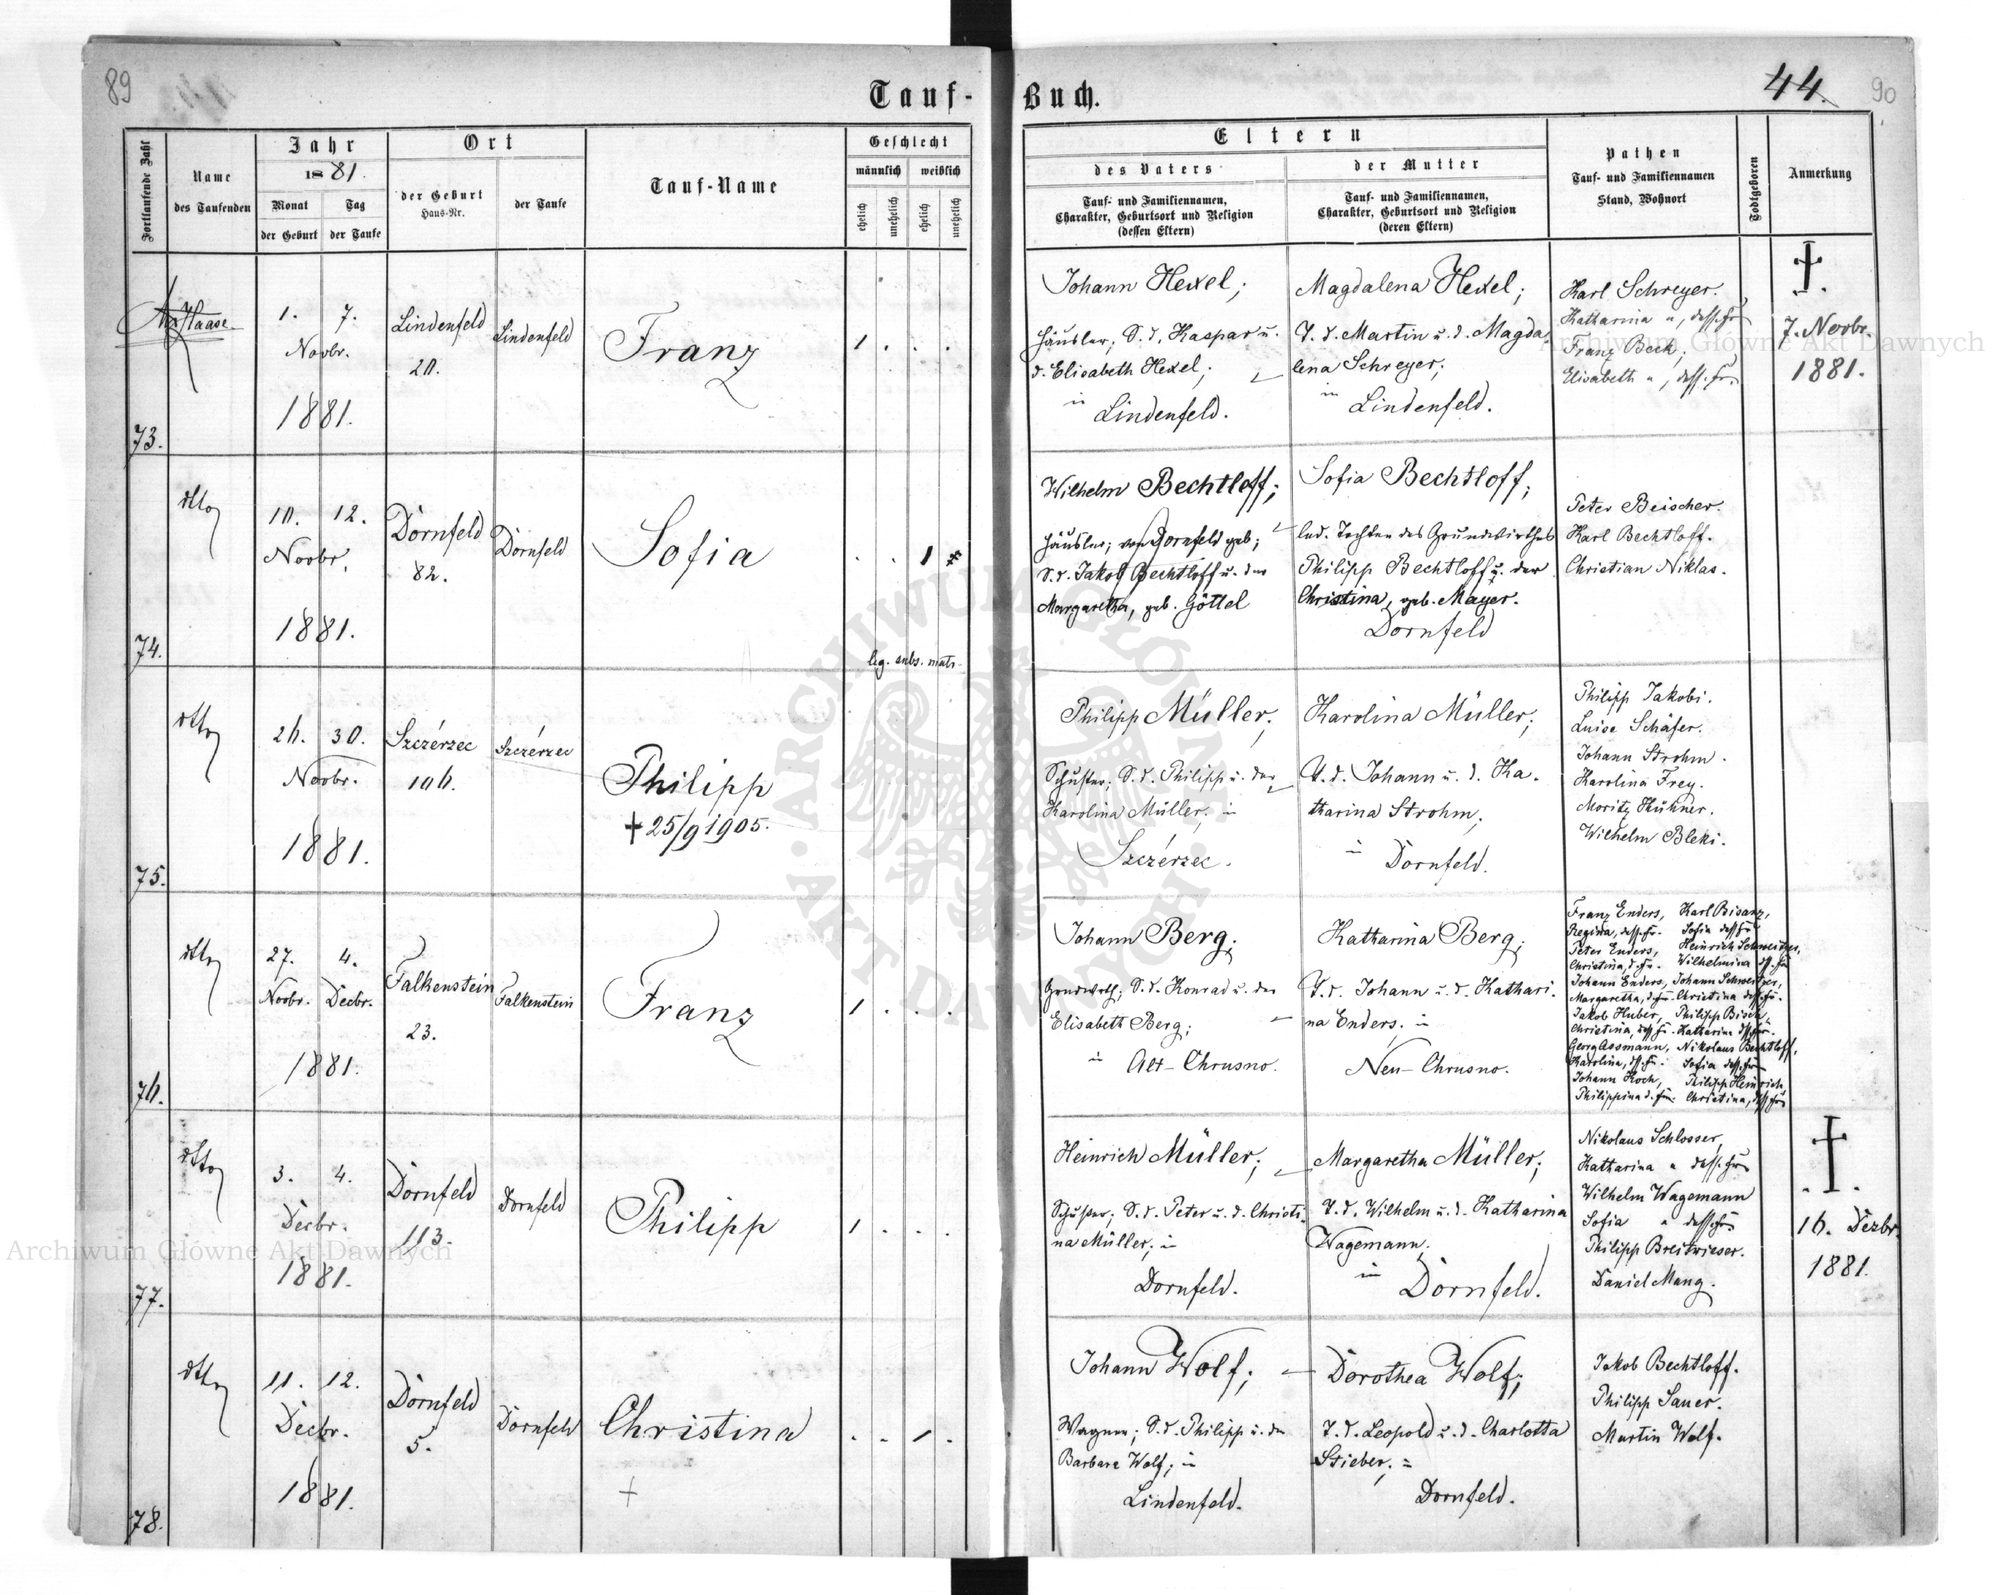 89
Tauf-
Buch.
44.
90
Fortlaufende Zahl
Name
des Taufenden
Jahr
1881.
Monat
Tag
der Geburt
der Taufe
Ort
der Geburt
Haus-Nr.
der Taufe
Tauf-Name
Geschlecht
männlich
weiblich
ehelich
unehelich
ehelich
unehelich
Eltern
des Vaters
Tauf- und Familiennamen,
Charakter, Geburtsort und Religion
(dessen Eltern)
der Mutter
Tauf- und Familiennamen,
Charakter, Geburtsort und Religion
(deren Eltern)
Pathen
Tauf- und Familiennamen
Stand, Wohnort
Todtgeboren
Anmerkung
73.
Haase
1. 7.
Novbr.
1881.
Lindenfeld
20.
Lindenfeld
Franz
1 . . .
Johann Hexel;
Häusler; S. d. Kaspar u.
d. Elisabeth Hexel;
in
Lindenfeld.
Magdalena Hexel;
T. d. Martin u. d. Magda-
lena Schreyer;
in
Lindenfeld.
Karl Schreyer.
Katharina ", dess. Fr.
Franz Bech;
Elisabeth ", dess. Fr.
†
7. Novbr.
1881.
74.
dtto
10. 12.
Novbr.
1881.
Dornfeld
82.
Dornfeld
Sofia
. . 1
leg. subs. matr.
Wilhelm Bechtloff;
Häusler; von Dornfeld geb;
S. d. Jakob Bechtloff u. der
Margaretha, geb. Göttel
Sofia Bechtloff;
led. Tochter des Grundwirthes
Philipp Bechtloff u. der
Christina, geb. Mayer.
Dornfeld
Peter Beischer.
Karl Bechtloff.
Christian Niklas.
75.
dtto
26. 30.
Novbr.
1881.
Szczérzec
106.
Szczérzec
Philipp
† 25/9 1905.
Philipp Müller;
Schuster; S. d. Philipp u. der
Karolina Müller; in
Szczérzec.
Karolina Müller;
T. d. Johann u. d. Ka-
tharina Strohm;
in
Dornfeld.
Philipp Jakobi.
Luise Schäfer.
Johann Strohm.
Karolina Frey.
Moritz Hühner.
Wilhelm Bleki.
76.
dtto
27. 4.
Novbr. Decbr.
1881.
Falkenstein
23.
Falkenstein
Franz
1 . . .
Johann Berg;
Grundwirth; S. d. Konrad u. der
Elisabeth Berg;
in
Alt-Chrusno.
Katharina Berg;
T. d. Johann u. d. Kathari-
na Enders; in
Neu-Chrusno.
Franz Enders, Karl Bisanz,
Regina, dess. Fr. Sofia dess. Fr.
Peter Enders, Heinrich Schweitzer,
Christina, d. Fr. Wilhelmina dss. Fr.
Johann Enders, Johann Schweitzer,
Margaretha, d. Fr. Christina dess. Fr.
Jakob Huber, Philipp Bisch
Christina, dess. Fr. Katharina dess. Fr.
Georg Assmann, Nikolaus Bechtloff,
Karolina, dss. Fr. Sofia dess. Fr.
Johann Koch, Philipp Heinrich
Philippina d. Fr. Christina, dess. Fr.
77.
dtto
3. 4.
Decbr.
1881.
Dornfeld
113.
Dornfeld
Philipp
1 . . .
Heinrich Müller;
Schuster; S. d. Peter u. d. Christi-
na Müller; in
Dornfeld.
Margaretha Müller;
T. d. Wilhelm u. d. Katharina
Wagemann;
in
Dornfeld.
Nikolaus Schlosser,
Katharina " dess. Fr.
Wilhelm Wagemann
Sofia " dess. Fr.
Philipp Breitwieser.
Daniel Mang.
†
16. Dezbr.
1881.
78.
dtto
11. 12.
Decbr.
1881.
Dornfeld
5.
Dornfeld
Christina
+
. . 1 .
Johann Wolf;
Wagner; S. d. Philipp u. der
Barbara Wolf; in
Lindenfeld.
Dorothea Wolf;
T. d. Leopold u. d. Charlotta
Stieber; in
Dornfeld.
Jakob Bechtloff.
Philipp Sauer.
Martin Wolf.
Archiwum Główne Akt Dawnych
Archiwum Główne Akt Dawnych
ARCHIWUM GŁÓWNE AKT DAWNYCH